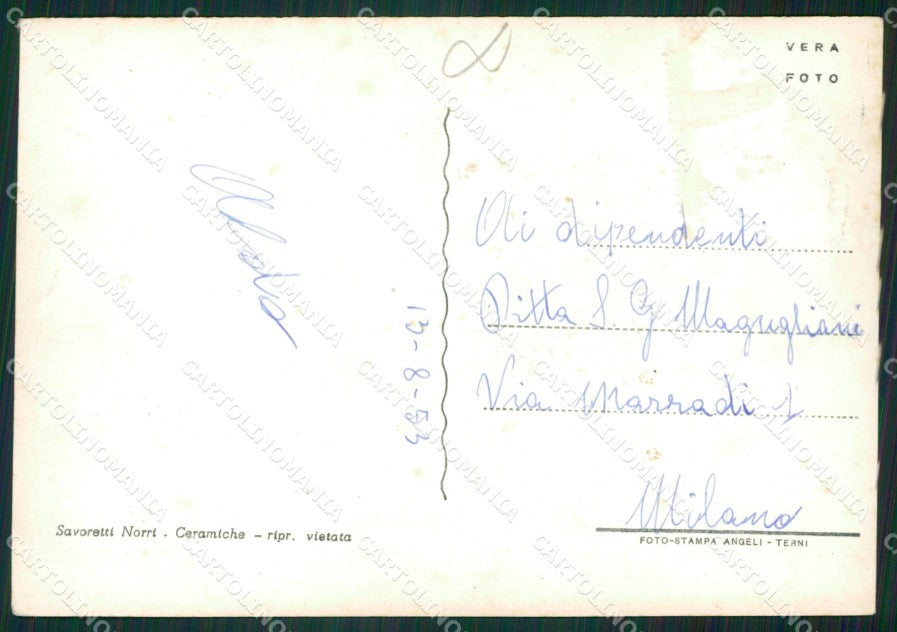 VERA
FOTO
Aldo
13-8-53
Ai dipendenti
Ditta S. G. Magugliani
Via Marradi 1
Milano
Savoretti Norri . Ceramiche - ripr. vietata
FOTO-STAMPA ANGELI - TERNI
CARTOLINOMANIA